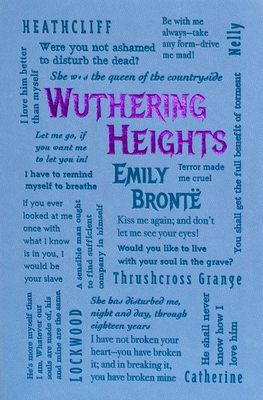 HEATHCLIFF
Be with me
always–take
any form–drive
me mad!
Nelly
I love him better
than myself
Were you not ashamed
to disturb the dead?
She was the queen of the countryside
WUTHERING
HEIGHTS
You shall get the full benefit of torment
Let me go, if
you want me
to let you in!
EMILY
BRONTË
Terror made
me cruel
I have to remind
myself to breathe
If you ever
looked at me
once with
what I know
is in you, I
would be
your slave
A sensible man ought
to find sufficient
company in himself
Kiss me again; and don't
let me see your eyes!
Would you like to live
with your soul in the grave?
Thrushcross Grange
He's more myself than
I am. Whatever our
souls are made of, his
and mine are the same.
LOCKWOOD
She has disturbed me,
night and day, through
eighteen years
I have not broken your
heart–you have broken
it; and in breaking it,
you have broken mine
He shall never
know how I
love him
Catherine